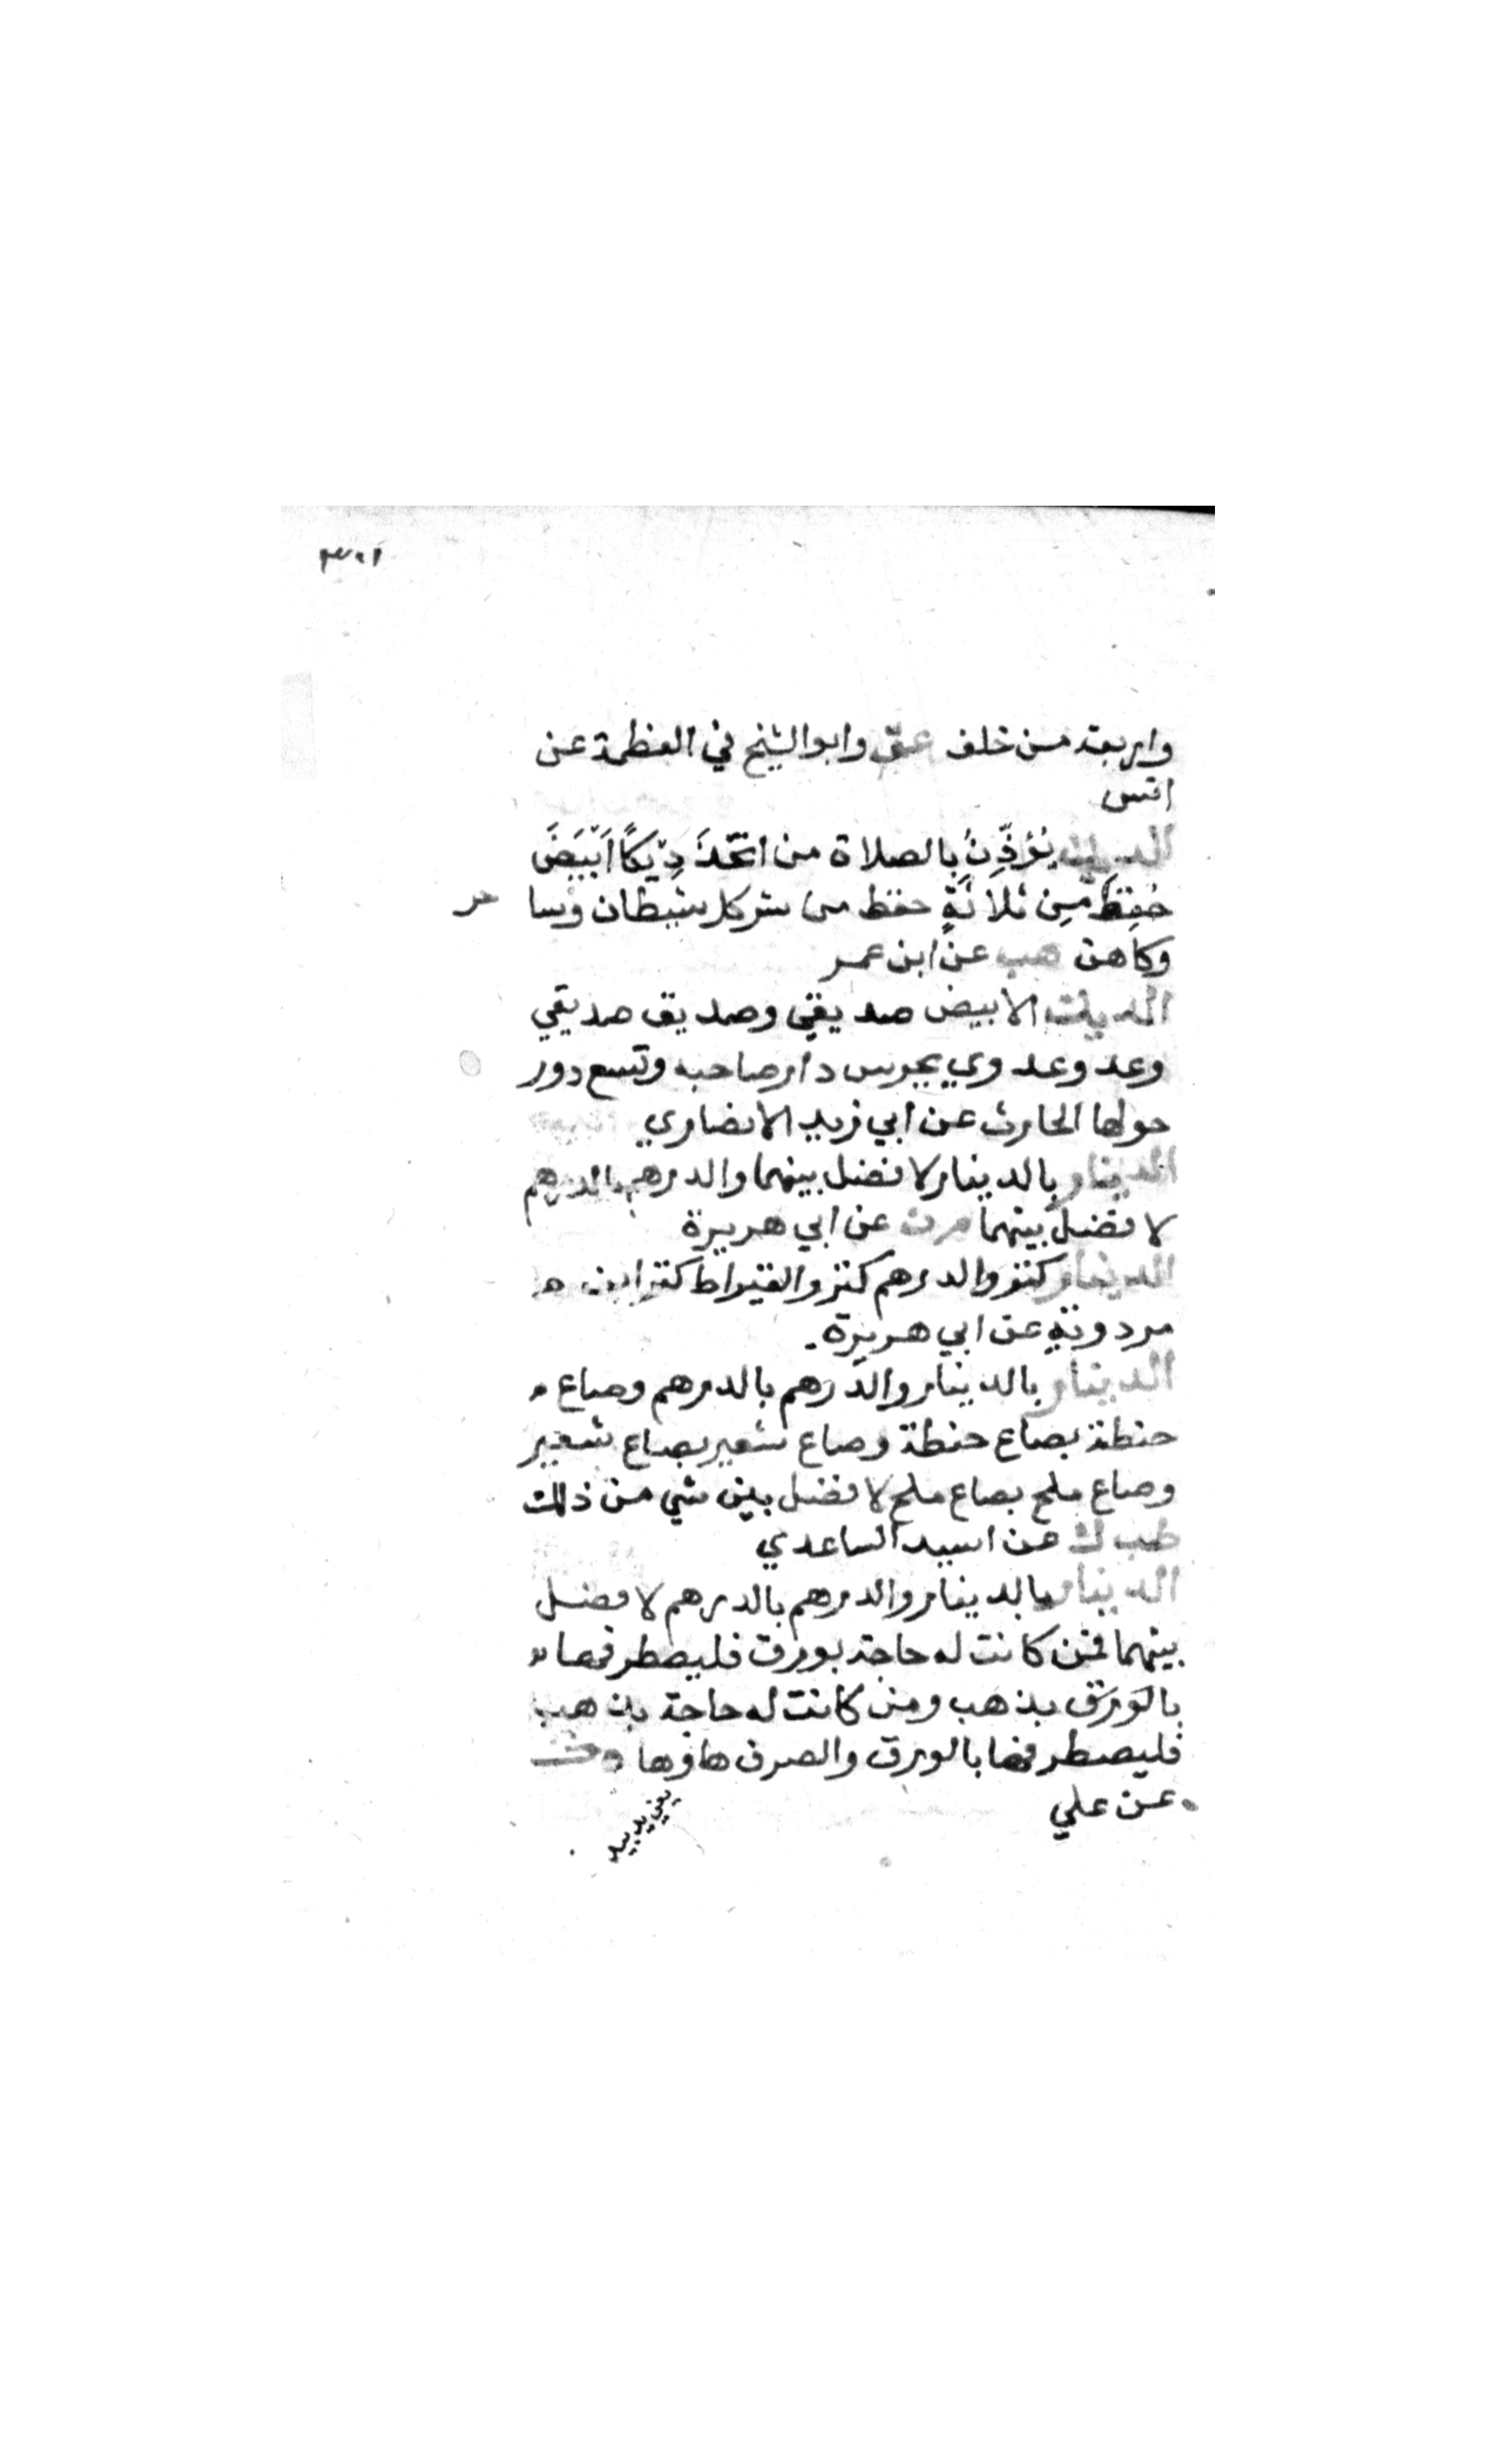 واربعة من خلف عق وابو الشيخ في العظمة عن
انس
الديك يُؤذِّنُ بالصلاة من اتَّخذَ دِيْكًا اَبْيَضَ
حُفِظَ مِن ثلاثةٍ حفظ من شر كل شيطان وساحر
وكاهن هب عن ابن عمر
الديك الابيض صديقي وصديق صديقي
وعدو عدوي يحرس دار صاحبه وتسع دور
حولها الحارث عن ابي زيد الانصاري
الدينار بالدينار لا فضل بينهما والدرهم بالدرهم
لا فضل بينهما م ن عن ابي هريرة
الدينار كنز والدرهم كنز والقيراط كنز ابن
مردوية عن ابي هريرة
الدينار بالدينار والدرهم بالدرهم وصاع
حنطة بصاع حنطة وصاع شعير بصاع شعير
وصاع ملح بصاع ملح لا فضل بين شي من ذلك
طب ك عن اسيد الساعدي
الدينار بالدينار والدرهم بالدرهم لا فضل
بينهما فمن كانت له حاجة بورق فليصطرفها
بالورق بذهب ومن كانت له حاجة بذهب
فليصطرفها بالورق والصرف هاوها
عن علي
يعني يد بيد